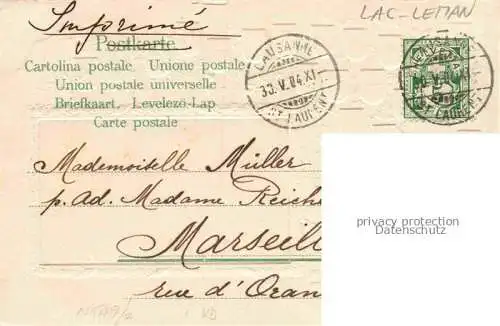 Imprimé
LAC-LEMAN
Postkarte
Cartolina postale Unione postale
Union postale universelle
Briefkaart. Levelező-Lap
Carte postale
LAUSANNE
30.V.04.XI
ST LAURENT
Mademoiselle Müller
p. Ad. Madame Reich
Marseil
rue d'Oran
privacy protection
Datenschutz